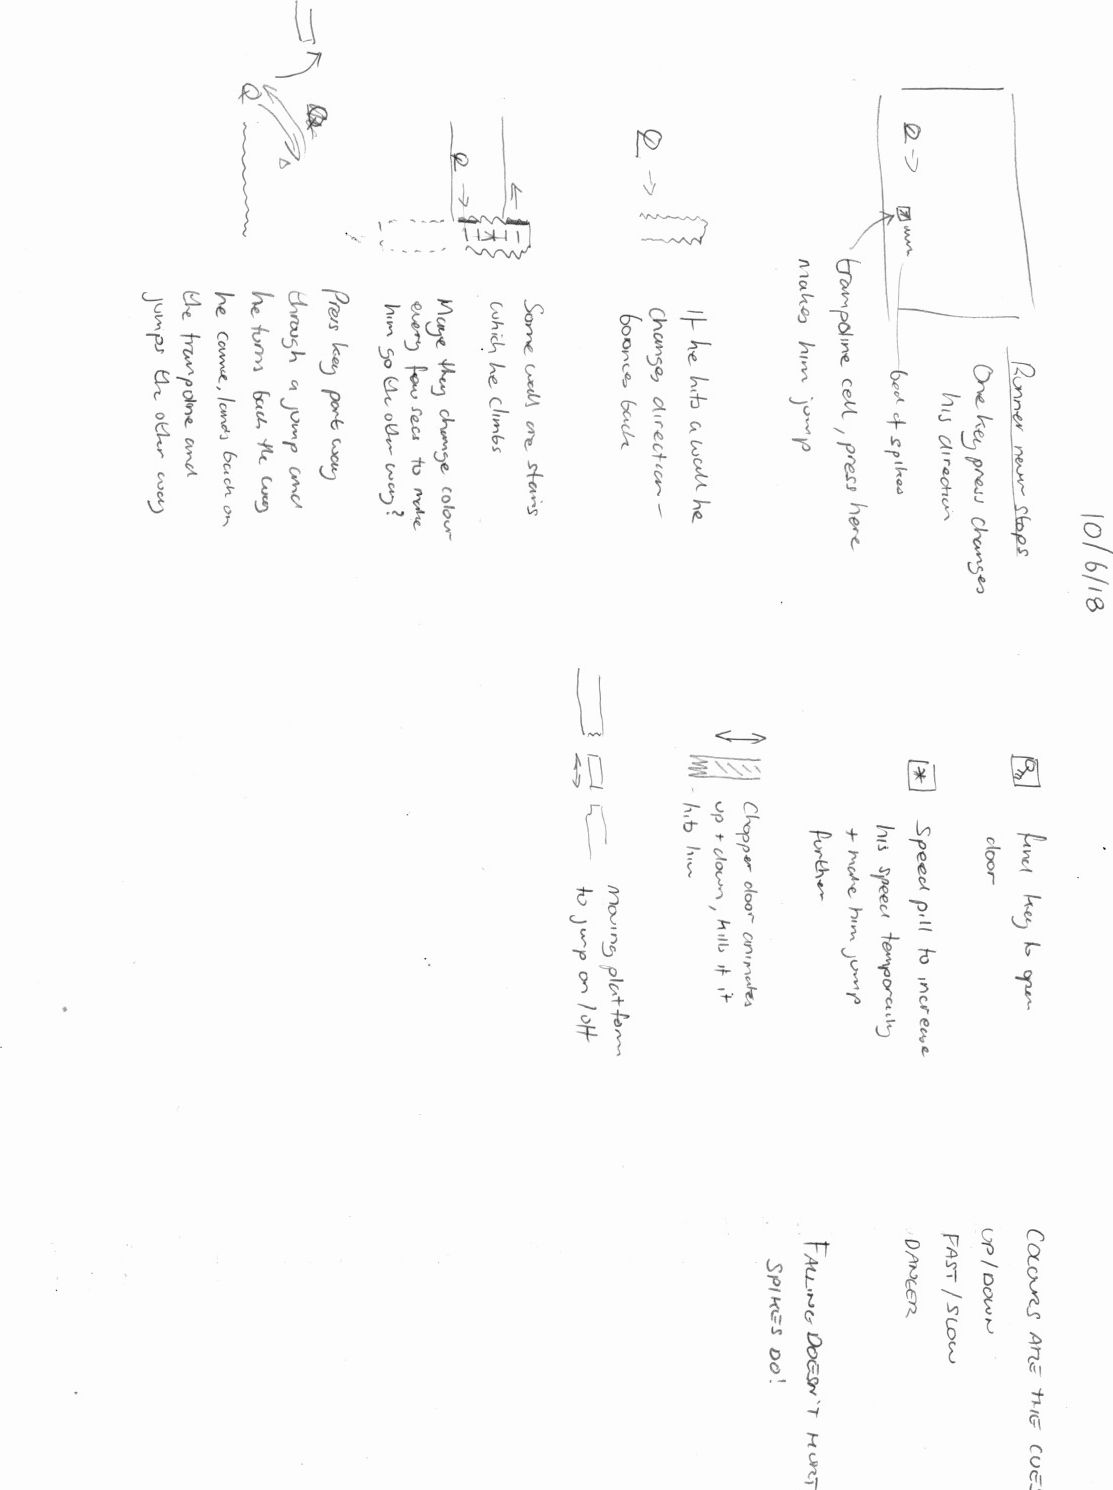 10/6/18
Runner never stops
One key press changes
his direction
bed of spikes
trampoline cell, press here
makes him jump
If he hits a wall he
changes direction -
bounces back
Some walls are stairs
which he climbs
they change colour
every few secs to make
him go the other way?
Press key part way
through a jump and
he turns back the way
he came, lands back on
the trampoline and
jumps the other way
Find key to open
door
* Speed pill to increase
his speed temporarily
+ make him jump
further
Chopper door animates
up + down, kills if it
hits him
moving platform
to jump on/off
COLOURS ARE THE CUES
UP/DOWN
FAST/SLOW
DANGER
FALLING DOESN'T HURT
SPIKES DO!